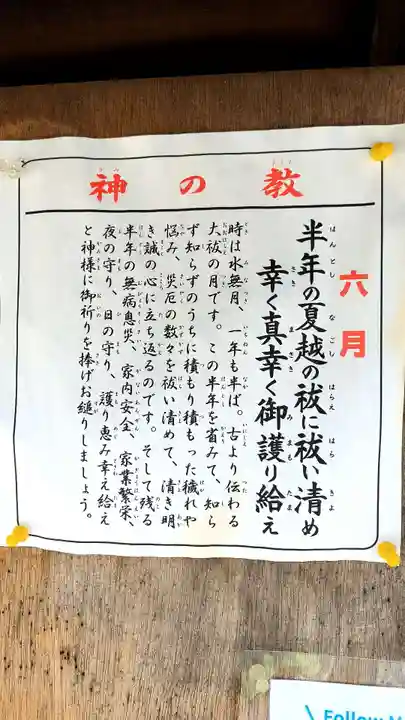 教の神
六月
半年の夏越の祓に祓い清め
幸く真幸く御護り給え
時は水無月、一年も半ば。古より伝わる
大祓の月です。この半年を省みて、知ら
ず知らずのうちに積もり積もった穢れや
悩み、災厄の数々を祓い清めて、清き明
き誠の心に立ち返るのです。そして残る
半年の無病息災、家内安全、家業繁栄、
夜の守り、日の守り、護り恵み幸え給え
と神様に御祈りを捧げお縋りしましょう。
Follow